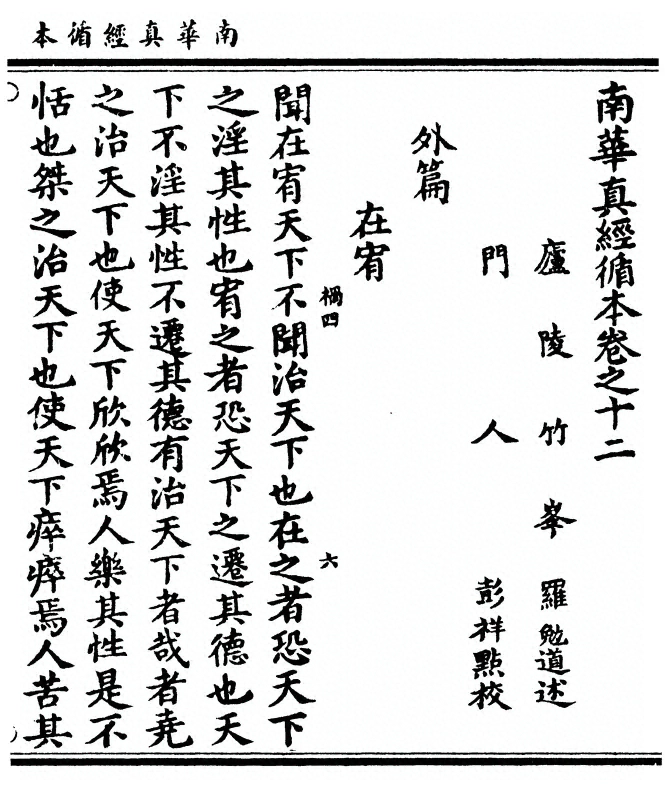 南華真經循本
南華真經循本卷之十二
廬陵竹峯羅勉道述
門人彭祥點校
外篇
在宥
禍四
六
聞在宥天下不聞治天下也在之者恐天下
之淫其性也宥之者恐天下之遷其德也天
下不淫其性不遷其德有治天下者哉者堯
之治天下也使天下欣欣焉人樂其性是不
恬也桀之治天下也使天下瘁瘁焉人苦其